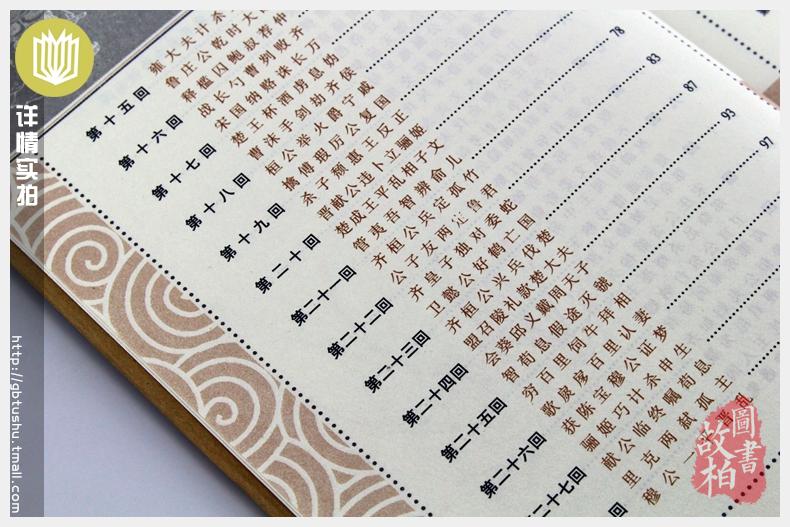 详情实拍
http://gbtushu.tmall.com
第十五回
雍大夫计杀
鲁庄公乾时大
第十六回
释槛囚鲍叔荐仲
战长勺曹刿败齐
第十七回
宋国纳赂诛长万
楚王杯酒虏息妫
第十八回
曹沫手剑劫齐侯
桓公举火爵宁戚
第十九回
擒傅瑕厉公复国
杀子颓惠王反正
第二十回
晋献公违卜立骊姬
楚成王平乱相子文
第二十一回
管夷吾智辨俞儿
齐桓公兵定孤竹
第二十二回
公子友两定鲁君
齐皇子独对委蛇
第二十三回
卫懿公好鹤亡国
齐桓公兴兵伐楚
第二十四回
盟召陵礼款楚大夫
会葵邱义戴周天子
第二十五回
智荀息假途灭虢
穷百里饲牛拜相
第二十六回
歌扊扅百里认妻
获陈宝穆公证梦
第二十七回
骊姬巧计杀申生
献公临终嘱荀息
里克两弑孤主
穆公一平晋乱
78
83
87
93
97
故柏圖書